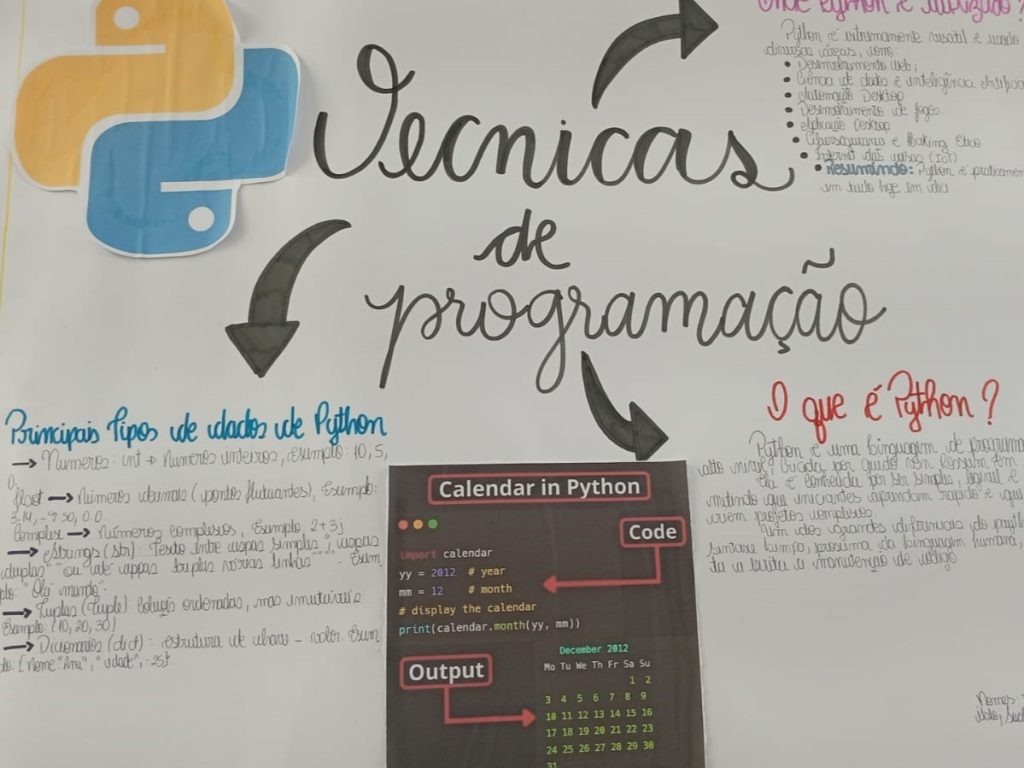 Onde Python é utilizado?
Python é extremamente versátil e usado
diversas áreas, como:
• Desenvolvimento web;
• Ciência de dados e inteligência artificia
• Automação Desktop
• Desenvolvimento de jogos
• Aplicação Desktop
• Cibersegurança e Hacking Ético
• Internet das coisas (IoT)
• Resumindo: Python é praticamen
em tudo hoje em dia
Tecnicas
de
programação
Principais Tipos de dados de Python
→ Numeros: int → Numeros inteiros, exemplo: 10, 5,
0,
float → Números decimais (pontos flutuantes), Exemplo:
3.14, -9.50, 0.0
Complex → Números complexos, Exemplo: 2+3j
→ Strings (str): Texto entre aspas simples '', aspas
duplas "" ou até aspas triplas novas linhas Exem
plo: "Olá mundo"
→ Tuplas (Tuple): Coleções ordenadas, mas imutáveis
Exemplo: (10, 20, 30)
→ Dicionarios (dict): estrutura de chave - valor Exem
plo: {Nome "Ana", "idade",: 25}
O que é Python?
Python é uma linguagem de programa
alto nível, criada por guido van Rossum em
ela é conhecida por ser simples, legível e
mitindo que iniciantes aprendam rápido e que
criem projetos complexos.
Um dos grandes diferenciais do python
sintaxe limpa, próxima da linguagem humana,
ta a leitura a manutenção de código
Calendar in Python
Code
import calendar
yy = 2012 # year
mm = 12 # month
# display the calendar
print(calendar.month(yy, mm))
Output
December 2012
Mo Tu We Th Fr Sa Su
1 2
3 4 5 6 7 8 9
10 11 12 13 14 15 16
17 18 19 20 21 22 23
24 25 26 27 28 29 30
31
Nomes: